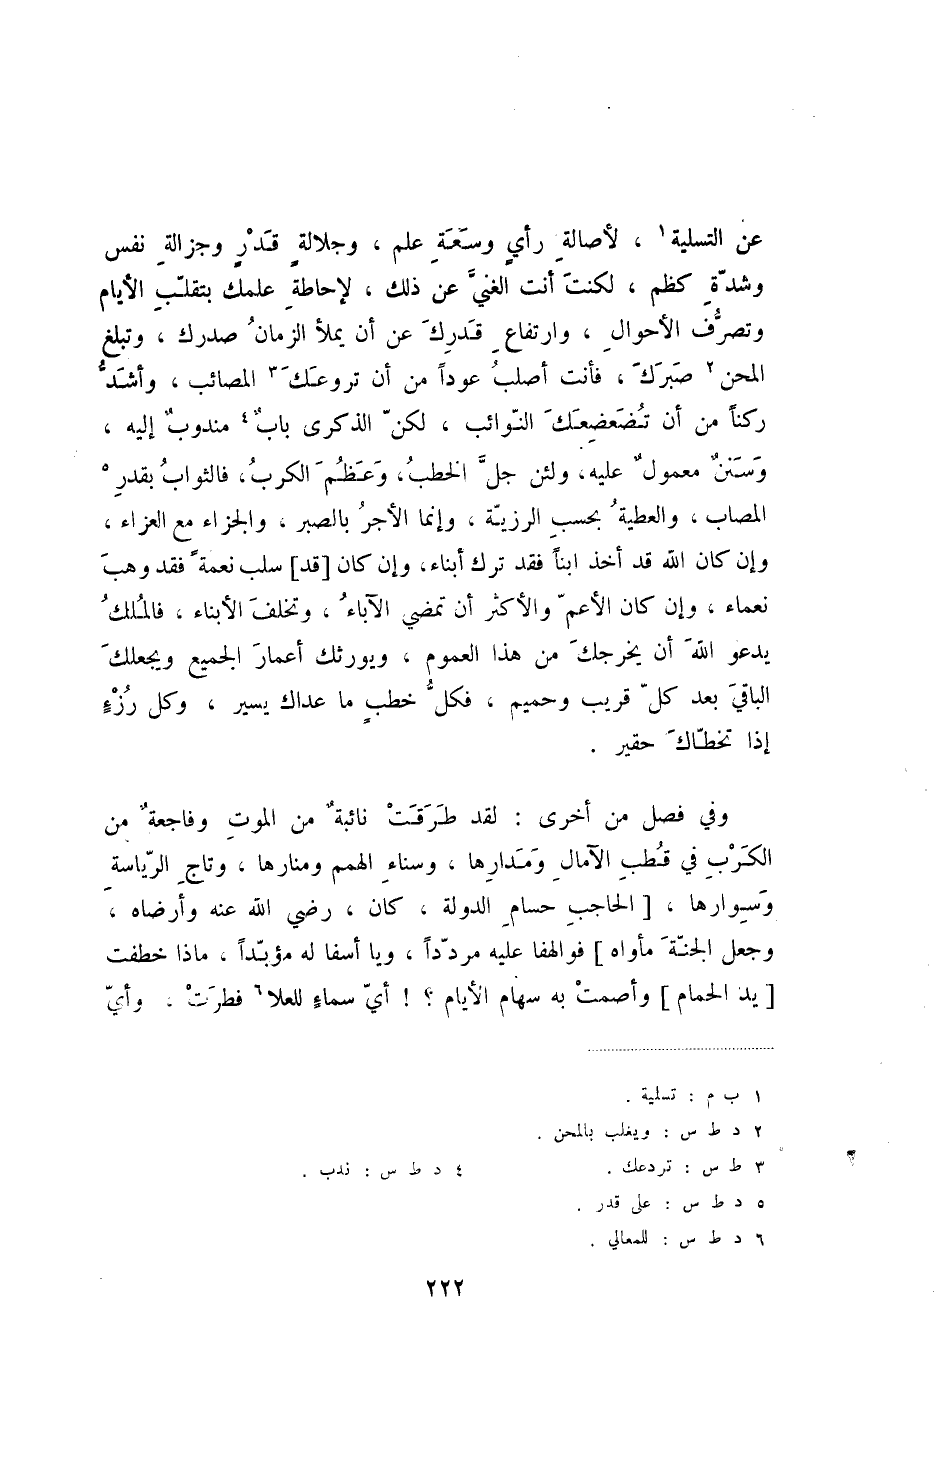 عن التسلية١ ، لأصالةِ رأيٍ وسَعَةِ علم ، وجلالةِ قَدْرٍ وجزالةِ نفس
وشدّةِ كظم ، لكنتَ أنت الغنيَّ عن ذلك ، لإحاطةِ علمك بتقلّبِ الأيام
وتصرُّف الأحوالِ ، وارتفاعِ قَدَرِكَ عن أن يملأ الزمانُ صدرك ، وتبلغ
المحن٢ صَبَرَكَ ، فأنت أصلبُ عوداً من أن تروعَكَ٣ المصائب ، وأشدُّ
ركناً من أن تُضَعضِعَكَ النّوائب ، لكنّ الذكرى بابٌ٤ مندوبٌ إليه ،
وَسَننٌ معمولٌ عليه، ولئن جلَّ الخطبُ، وَعَظُمَ الكربُ، فالثوابُ بقدرِ٥
المصاب ، والعطيةُ بحسبِ الرزيّة ، وإنما الأجرُ بالصبر ، والجزاء مع العزاء ،
وإن كان الله قد أخذ ابناً فقد ترك أبناء، وإن كان [قد] سلب نعمةً فقد وهبَ
نعماء ، وإن كان الأعمّ والأكثر أن تمضي الآباءُ ، وتخلفَ الأبناء ، فالمُلكُ
يدعو اللهَ أن يخرجكَ من هذا العموم ، ويورثك أعمارَ الجميع ويجعلكَ
الباقيَ بعد كلّ قريب وحميم ، فكلُّ خطبٍ ما عداك يسير ، وكل رُزْءٍ
إذا تخطّاكَ حقير .
وفي فصل من أخرى : لقد طَرَقَتْ نائبةٌ من الموتِ وفاجعةٌ من
الكَرْبِ في قُطبِ الآمالِ وَمَدارِها ، وسناءِ الهمم ومنارها ، وتاجِ الرّياسةِ
وَسِوارها ، [ الحاجبِ حسامِ الدولة ، كان ، رضي الله عنه وأرضاه ،
وجعل الجنّةَ مأواه ] فوالهفا عليه مردّداً ، ويا أسفا له مؤبّداً ، ماذا خطفت
[ يد الحمام ] وأصمتْ به سهام الأيام ؟ ! أيّ سماءٍ للعلا٦ فطرَتْ ، وأيّ
١ ب م : تسلية .
٢ د ط س : ويغلب بالمحن .
٣ ط س : تردعك . ٤ د ط س : ندب .
٥ د ط س : على قدر .
٦ د ط س : للمعالي .
٢٢٢